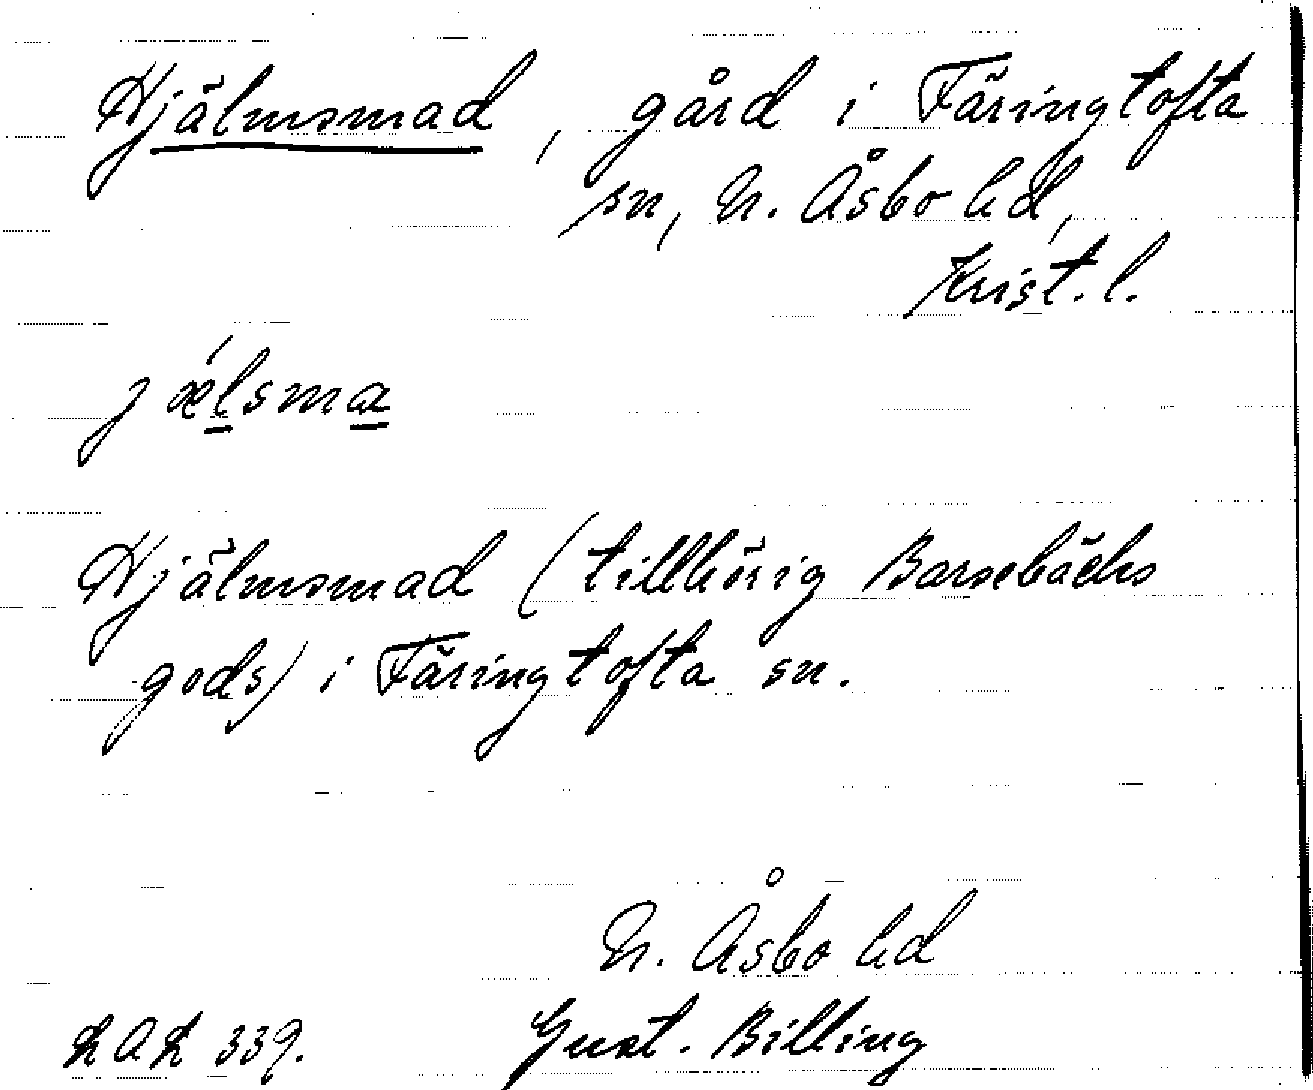 Hjälmsmad, gård i Färingtofta
sn, N. Åsbo hd,
Krist. l.
jǽlsma
Hjälmsmad (tillhörig Barsebäcks
gods) i Färingtofta sn.
N. Åsbo hd
LAL 339. Gust. Billing